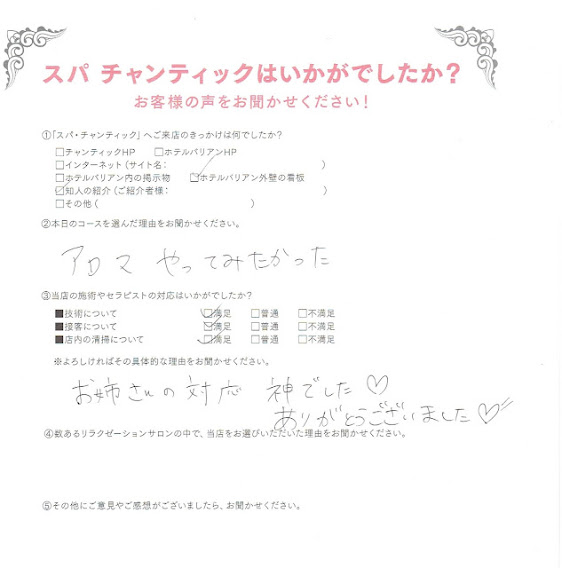 スパ チャンティックはいかがでしたか？
お客様の声をお聞かせください！
①「スパ・チャンティック」へご来店のきっかけは何でしたか？
□チャンティックHP □ホテルバリアンHP
□インターネット（サイト名： ）
□ホテルバリアン内の掲示物 □ホテルバリアン外壁の看板
□知人の紹介（ご紹介者様： ）
□その他（ ）
②本日のコースを選んだ理由をお聞かせください。
アロマ やってみたかった
③当店の施術やセラピストの対応はいかがでしたか？
■技術について ☑満足 □普通 □不満足
■接客について ☑満足 □普通 □不満足
■店内の清掃について ☑満足 □普通 □不満足
※よろしければその具体的な理由をお聞かせください。
お姉さんの対応 神でした♡
ありがとうございました♡
④数あるリラクゼーションサロンの中で、当店をお選びいただいた理由をお聞かせください。
⑤その他にご意見やご感想がございましたら、お聞かせください。